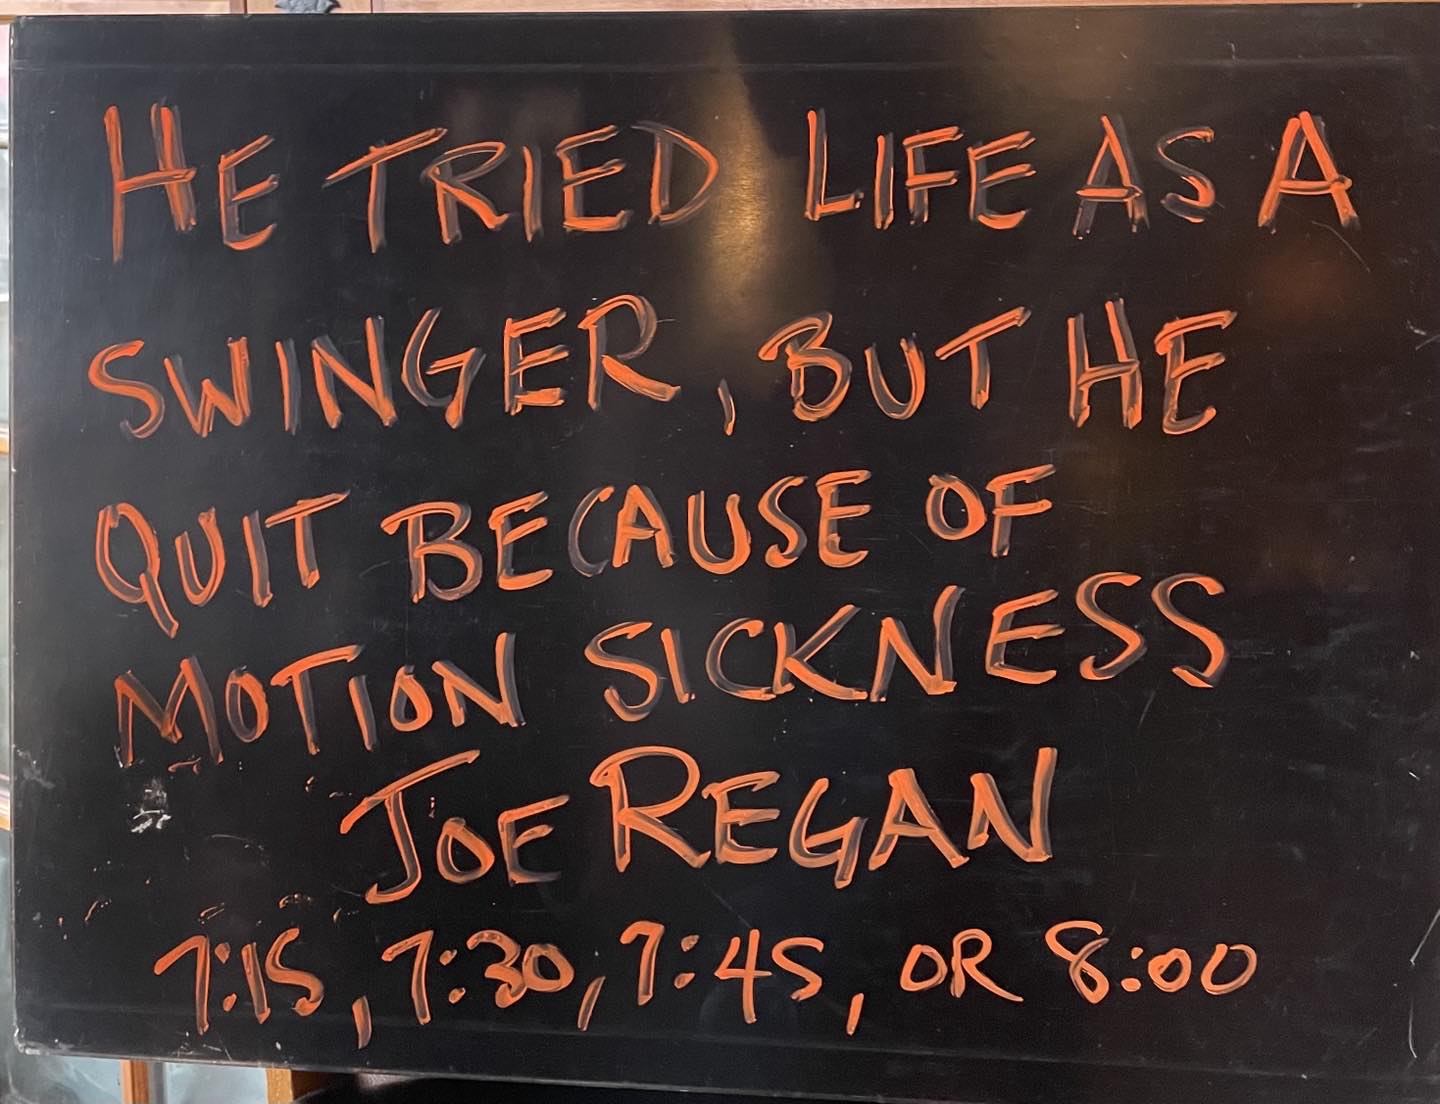 HE TRIED LIFE AS A
SWINGER, BUT HE
QUIT BECAUSE OF
MOTION SICKNESS
JOE REGAN
7:15, 7:30, 7:45, OR 8:00